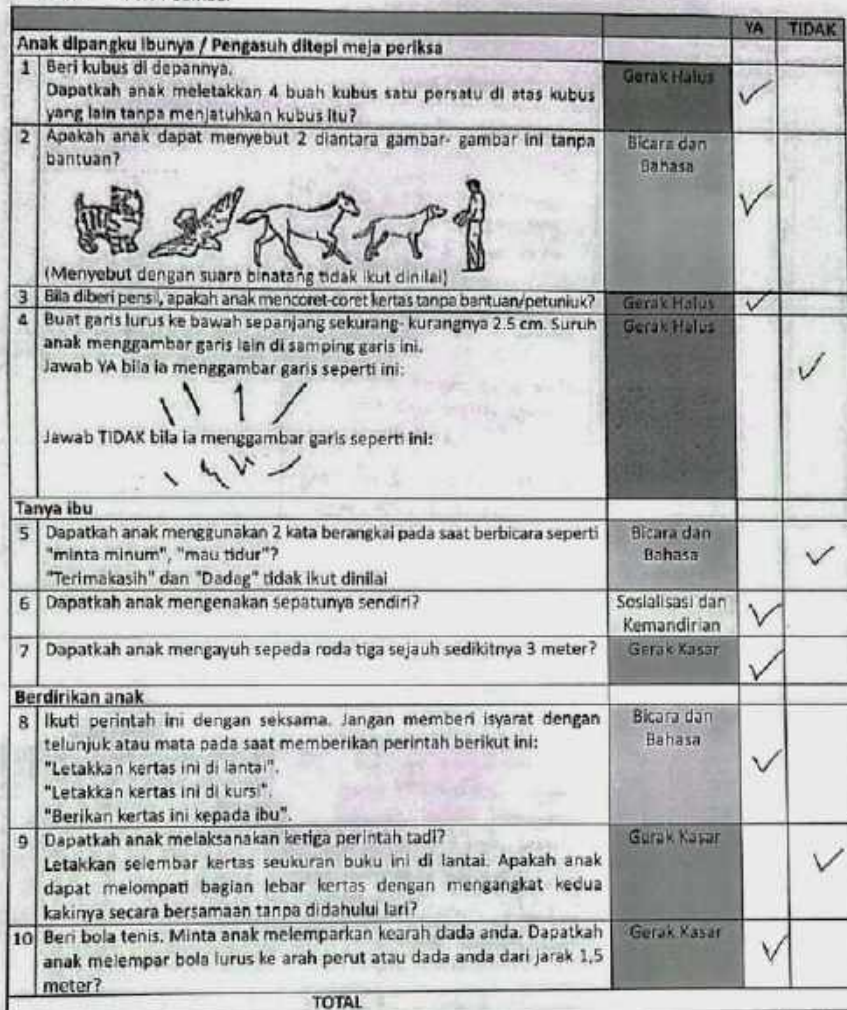 YA TIDAK
Anak dipangku ibunya / Pengasuh ditepi meja periksa
1 Beri kubus di depannya.
Dapatkah anak meletakkan 4 buah kubus satu persatu di atas kubus
yang lain tanpa menjatuhkan kubus itu?
Gerak Halus
2 Apakah anak dapat menyebut 2 diantara gambar- gambar ini tanpa
bantuan?
(Menyebut dengan suara binatang tidak ikut dinilai)
Bicara dan
Bahasa
3 Bila diberi pensil, apakah anak mencoret-coret kertas tanpa bantuan/petunjuk?
Gerak Halus
4 Buat garis lurus ke bawah sepanjang sekurang- kurangnya 2.5 cm. Suruh
anak menggambar garis lain di samping garis ini.
Jawab YA bila ia menggambar garis seperti ini:
Jawab TIDAK bila ia menggambar garis seperti ini:
Gerak Halus
Tanya ibu
5 Dapatkah anak menggunakan 2 kata berangkai pada saat berbicara seperti
"minta minum", "mau tidur"?
"Terimakasih" dan "Dadag" tidak ikut dinilai
Bicara dan
Bahasa
6 Dapatkah anak mengenakan sepatunya sendiri?
Sosialisasi dan
Kemandirian
7 Dapatkah anak mengayuh sepeda roda tiga sejauh sedikitnya 3 meter?
Gerak Kasar
Berdirikan anak
8 Ikuti perintah ini dengan seksama. Jangan memberi isyarat dengan
telunjuk atau mata pada saat memberikan perintah berikut ini:
"Letakkan kertas ini di lantai".
"Letakkan kertas ini di kursi".
"Berikan kertas ini kepada ibu".
Bicara dan
Bahasa
9 Dapatkah anak melaksanakan ketiga perintah tadi?
Letakkan selembar kertas seukuran buku ini di lantai. Apakah anak
dapat melompati bagian lebar kertas dengan mengangkat kedua
kakinya secara bersamaan tanpa didahului lari?
Gerak Kasar
10 Beri bola tenis. Minta anak melemparkan kearah dada anda. Dapatkah
anak melempar bola lurus ke arah perut atau dada anda dari jarak 1,5
meter?
Gerak Kasar
TOTAL